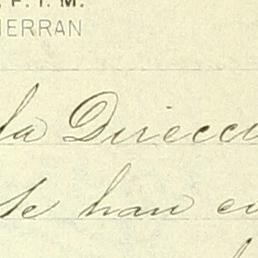 P. I. M.
HERRAN
la Direcc
se han